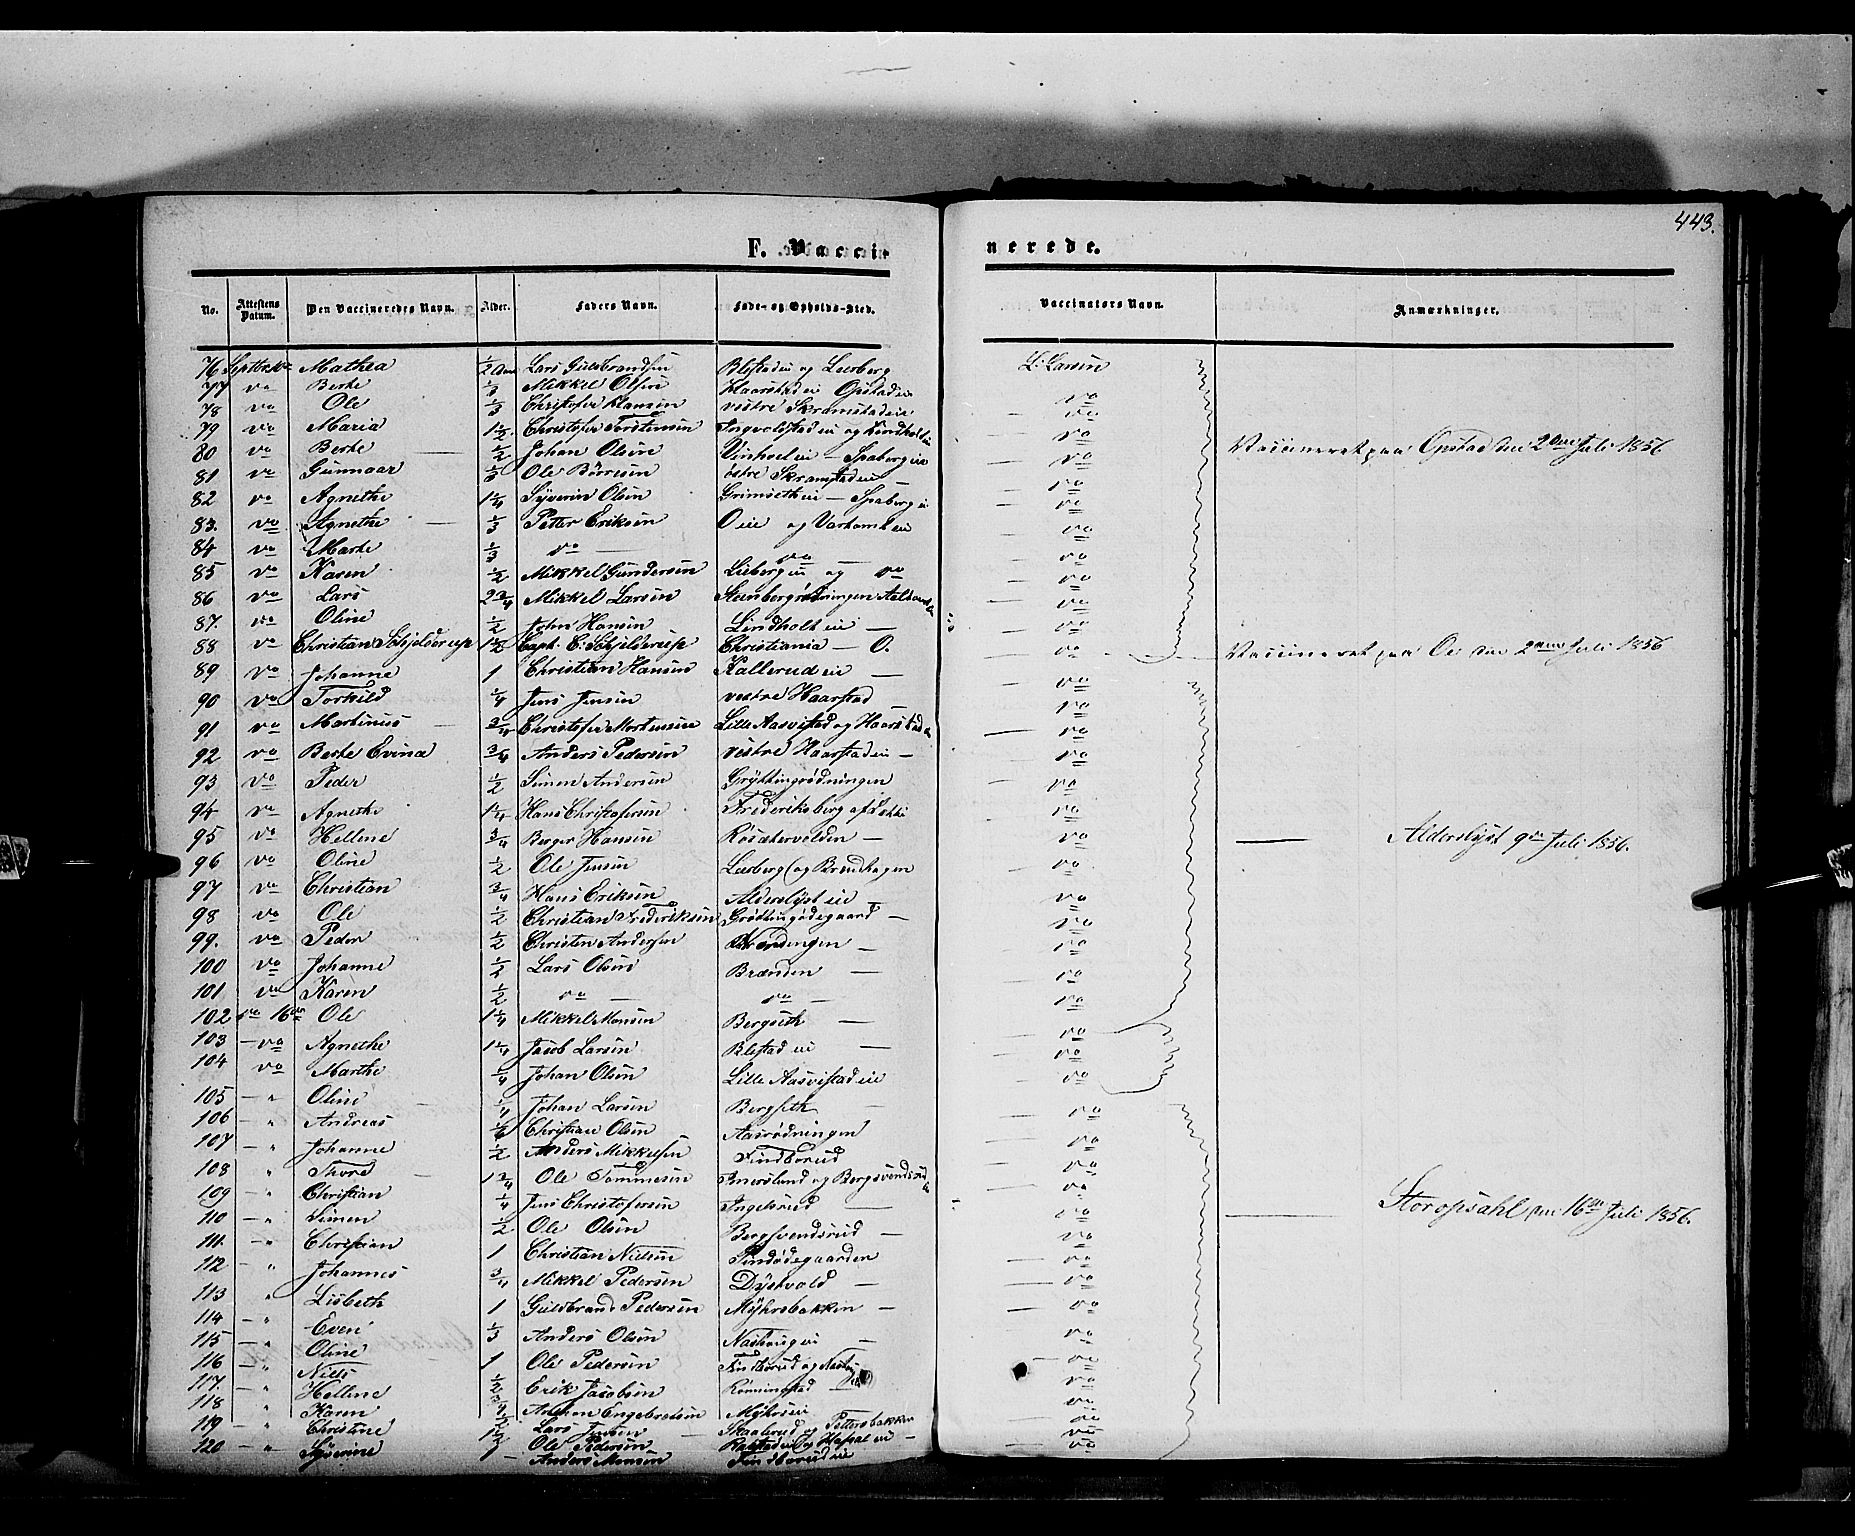 443.
F. Vaccinerede.
No. | Attestens Datum. | Den Vaccineredes Navn. | Alder. | Faders Navn. | Føde- og Opholds-Sted. | Vaccinators Navn. | Anmærkninger.
76 Mathea 1/2 Lars Guldbrandsen Blistadeie og Leeberg L: Larsen
77 do Berte 1/3 Mikkel Olsen Haarstadeie Opstadeie do
78 do Ole 1/3 Christofer Hansen vestre Skramstadeie do
79 do Maria 1 1/2 Christofer Torstensen og do
80 do Berte 1/2 Johan Olsen — Spabergeie do Vaccineret paa Opstad den 2den Juli 1856
81 do Gunnaar 1/3 Ole Börresen østre Skramstadeie — do
82 do Agnethe 1 1/4 Syverin Olsen Grimsetheie — Spabergeie do
83. do Agnethe — 1/3 Petter Eriksen Oeie og do
84 do Marte 1/3 do — do — do
85 do Karen 1/2 Mikkel Gundersen og do do
86 do Lars 2 3/4 Mikkel Larsen do
87. do Oline 1/2 John Hansen Lindholteie — do
88 do Christian Schjelderup 1 1/2 Capt. C: Schjelderup Christiania — O. do Vaccineret paa Oe den 2den Juli 1856
89 do Johanne 1 Christian Hansen Kallerudeie — do
90 do Torkild 1/4 Jens Jensen vestre Haarstad do
91 do Martinus — 3/4 Christofer Mortensen Lille Aasvistad og Haarstadeie do
92 do Berte Evina 3/4 Anders Pedersen vestre Haarstadeie — do
93 do Peder 1/2 Simen Andersen Gryttingrødningen do
94 do Agnethe 1 1/4 Hans Christofersen Frederiksberg do
95 do Hellene 3/4 Berger Hansen Rösætervolden — do — Alderslyst 9de Juli 1856.
96 do Oline 1/2 Ole Jensen Leeberg og Brendhagen do
97 do Christian 3/4 Hans Eriksen Alderslysteie do
98 do Ole 1/2 Christian Frederiksen Gröttingødegaard — do
99. do Peder 1/2 Christen Andersen — do
100 do Johanne 1/2 Lars Olsen Brænden — do
101 do Karen 1/2 do — do — do
102 do 16de Ole 1 1/4 Mikkel Monsen Bergseth — do
103 — do Agnethe 1 1/4 Jacob Larsen Blistadeie — do
104 do Marthe 1/4 Johan Olsen Lille Aasvistadeie do
105 — " Oline 1/4 Johan Larsen Bergseth — do
106 — " Andreas Christian Olsen Aasrødningen do
107 — " Johanne 1/2 Anders Mikkelsen Findborud do
108 " Thore — 1 3/4 Ole Tommesen og Bergsvendsrudeie do
109 — " Christian 1/4 Jens Christofersen Ingelsrud — do
110 — " Simen 1/2 Ole Olsen Bergsvendsrud — do — Storopsahl den 16de Juli 1856.
111. — " Christian 1 Christian Nielsen Findødegaarden do
112 — " Johannes 3/4 Mikkel Pedersen Dystvold — do
113 " Lisbeth 1 Guldbrand Pedersen Myhrsbakken — do
114 — " Even 1/3 Anders Olsen — do
115 — " Oline 1 Ole Pedersen Findborud og do
116 — " Niels 1/2 Erik Jacobsen Rönningstad — do
117. — " Hellene Engebretsen do
118 — " Karen Lars Jensen Skaalerud og Pettersbakken do
119 — " Christine Ole Pedersen do
120 — " Syverine Anders Monsen Findborudeie do